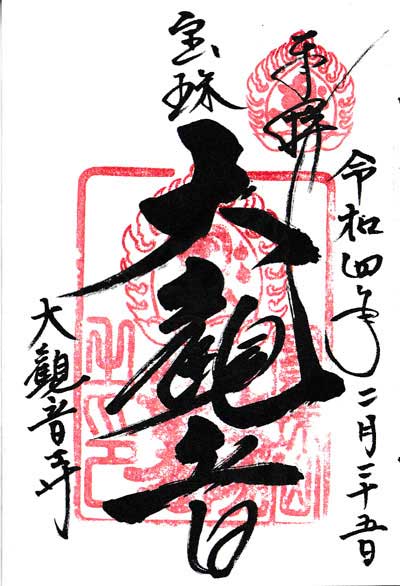 奉拝
令和四年二月二十五日
宝珠
大観音
大観音寺